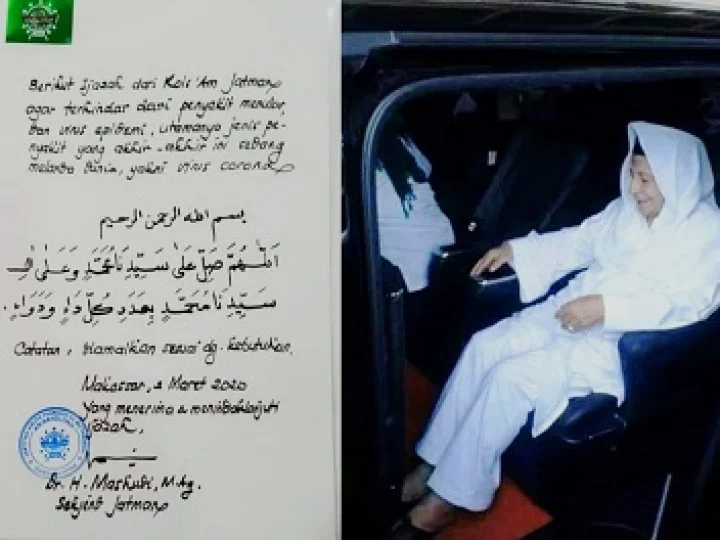 Berikut Ijazah dari Rois 'Am Jatman
agar terhindar dari penyakit menular
dan virus epidemi, utamanya jenis pe-
nyakit yang akhir-akhir ini sedang
melanda dunia, yakni virus corona
بسم الله الرحمن الرحيم
اَللّٰهُمَّ صَلِّ عَلٰى سَيِّدِنَا مُحَمَّدٍ وَعَلٰى اٰلِ
سَيِّدِنَا مُحَمَّدٍ بِعَدَدِ كُلِّ دَاءٍ وَدَوَاءٍ.
Catatan : diamalkan sesuai dg. kebutuhan.
Makassar, 2 Maret 2020
Yang menerima & menindaklanjuti
Ijazah,
Dr. H. Mashudi, M.Ag.
Sekjend Jatman